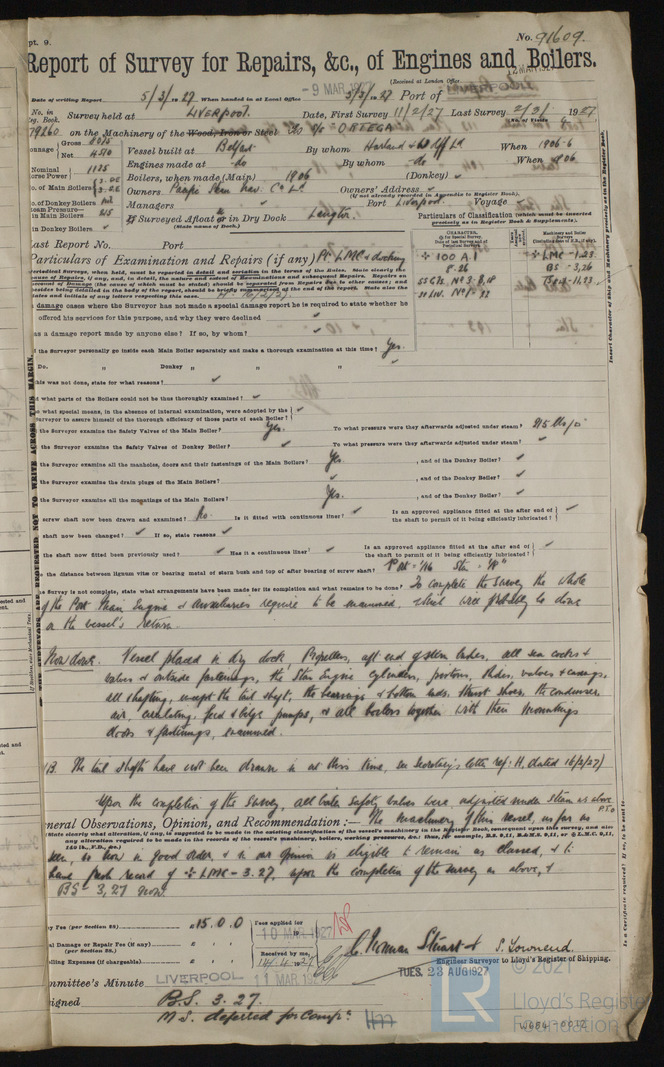 pt. 9.
No. 91609.
Report of Survey for Repairs, &c., of Engines and Boilers.
(Received at London Office
- 9 MAR 1927
Date of writing Report 5/3/1927 When handed in at Local Office 5/3/1927 Port of
No. in Reg. Book. Survey held at LIVERPOOL. Date, First Survey 11/2/27 Last Survey 2/3/1927
79260 on the Machinery of the Wood, Iron or Steel S/S ORTEGA
Gross 8075
Net 4510
Vessel built at Belfast By whom Harland & Wolff Ld When 1906-6
Engines made at do By whom do When 1906
Nominal Horse Power 1125
Boilers, when made (Main) 1906 (Donkey) ✓
No. of Main Boilers
Owners Pacific Steam Nav. Co Ld Owners' Address ✓
(if not already recorded in Appendix to Register Book).
No. of Donkey Boilers
Managers Port Liverpool. Voyage
Steam Pressure— in Main Boilers 215
If Surveyed Afloat or in Dry Dock Langton
(State name of Dock.)
in Donkey Boilers ✓
Particulars of Classification (which must be inserted precisely as in Register Book & Supplements).
Last Report No. Port
+ 100 A1
8.26
+ LMC-1,23
BS-3,26
Particulars of Examination and Repairs (if any) Pt LMC & docking
damage cases where the Surveyor has not made a special damage report he is required to state whether he
offered his services for this purpose, and why they were declined ✓
as a damage report made by anyone else? If so, by whom? ✓
d the Surveyor personally go inside each Main Boiler separately and make a thorough examination at this time? Yes.
Do. " Donkey " " " ✓
this was not done, state for what reasons? ✓
d what parts of the Boilers could not be thus thoroughly examined? ✓
what special means, in the absence of internal examination, were adopted by the Surveyor to assure himself of the thorough efficiency of those parts of each Boiler? ✓
the Surveyor examine the Safety Valves of the Main Boiler? Yes. To what pressure were they afterwards adjusted under steam? 215 lbs/□"
the Surveyor examine the Safety Valves of Donkey Boiler? ✓ To what pressure were they afterwards adjusted under steam? ✓
the Surveyor examine all the manholes, doors and their fastenings of the Main Boilers? Yes. , and of the Donkey Boiler? ✓
the Surveyor examine the drain plugs of the Main Boilers? ✓ , and of the Donkey Boiler? ✓
the Surveyor examine all the mountings of the Main Boilers? Yes. , and of the Donkey Boiler? ✓
screw shaft now been drawn and examined? No. Is it fitted with continuous liner? ✓ Is an approved appliance fitted at the after end of the shaft to permit of it being efficiently lubricated? ✓
shaft now been changed? ✓ If so, state reasons ✓
the shaft now fitted been previously used? ✓ Has it a continuous liner? ✓ Is an approved appliance fitted at the after end of the shaft to permit of it being efficiently lubricated? ✓
the distance between lignum vitæ or bearing metal of stern bush and top of after bearing of screw shaft?
Survey is not complete, state what arrangements have been made for its completion and what remains to be done? To complete the Survey the whole
of the Port Main Engine & Auxiliaries require to be examined, which will probably be done
on the vessel's return.
Now done. Vessel placed in dry dock, Propellers, aft end of stern tubes, all sea cocks &
valves & outside fastenings, the Stbn Engine cylinders, pistons, slides, valves & casings,
all shafting, except the tail shaft, the bearings & bottom ends, thrust shoes, the condenser,
air, circulating, feed & bilge pumps, & all boilers together with their mountings
doors & fastenings, examined.
NB. The tail shafts have not been drawn in at this time, see Secretary's letter ref: H, dated 16/2/27)
Upon the completion of the Survey, all boiler safety valves were adjusted under steam as above
P.T.O
General Observations, Opinion, and Recommendation:— The machinery of this vessel, as far as
(State clearly what alteration, if any, is suggested to be made in the existing classification of the vessel's machinery in the Register Book, consequent upon this survey, and also
any alteration required to be made in the records of the vessel's machinery, boilers, working pressures, &c.; thus, for example, B.S. 9,11, B.&M.S. 9,11, or + L.M.C. 9,11,
140 lb., F.D., &c.)
seen, is now in good order, & in our opinion is eligible to remain as classed, & to
have fresh record of + LMC-3.27, upon the completion of the survey as above, &
BS-3,27 now.
y Fee (per Section 28) £15.0.0 Fees applied for 10 MAR 1927
al Damage or Repair Fee (if any) (per Section 28.) £ : :
Received by me,
elling Expenses (if chargeable) £ : : 14.4.1927
C. Norman Stuart & S. Townend.
Engineer Surveyor to Lloyd's Register of Shipping.
Committee's Minute LIVERPOOL 11 MAR 19
TUES. 23 AUG 1927
signed B.S. 3.27.
M.S. deferred for Compn
© 2021
LR
Lloyd's Register
Foundation
W684-0012